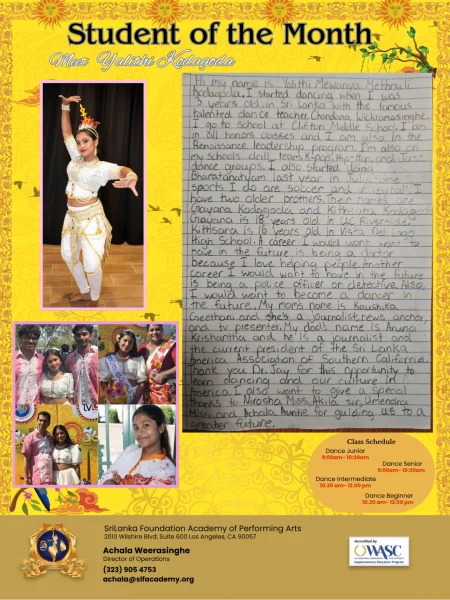 Student of the Month
Meet Yalithi Kodagoda
Hi my name is Yalithi Mewanya Methnuli
Kodagoda. I started dancing when I was
5 years old in Sri Lanka with the famous
talented dance teacher, Chandana Wickramasinghe.
I go to school at Clifton Middle School. I am
in all honors classes and I am also in the
Renaissance leadership program. I'm also on
my schools drill team, K-pop, Hip-Hop, and Jazz
dance groups. I also started doing
Bharatanatyam last year in
sports I do are soccer and I
have two older brothers. Their names are
Gnayana Kodagoda and Kithsara Kodagoda
Gnayana is 18 years old in UC Riverside
Kithsara is 16 years old in Vista Del Lago
High School. A career I would want to
have in the future is being a doctor
because I love helping people. Another
career I would want to have in the future
is being a police officer or detective. Also,
I would want to become a dancer in
the future. My mom's name is Kaushika
Geethani and she's a journalist, news anchor,
and tv presenter. My dad's name is Aruna
Krishantha and he is a journalist and
the current president of the Sri Lanka
America Association of Southern California.
Thank you Dr. Jay for this opportunity to
learn dancing and our culture in
America. I also want to give a special
thanks to Nirosha Miss, Akila sir, Umendra
Miss and Achala Auntie for guiding us to a
greater future.
Class Schedule
Dance Junior
9:00am- 10:30am
Dance Senior
9:00am- 10:30am
Dance Intermediate
10.30 am- 12.00 pm
Dance Beginner
10.30 am- 12.00 pm
SriLanka Foundation Academy of Performing Arts
2010 Wilshire Blvd, Suite 600 Los Angeles, CA 90057
Achala Weerasinghe
Director of Operations
(323) 905 4753
achala@slfacademy.org
Accredited by
WASC
Supplementary Education Program